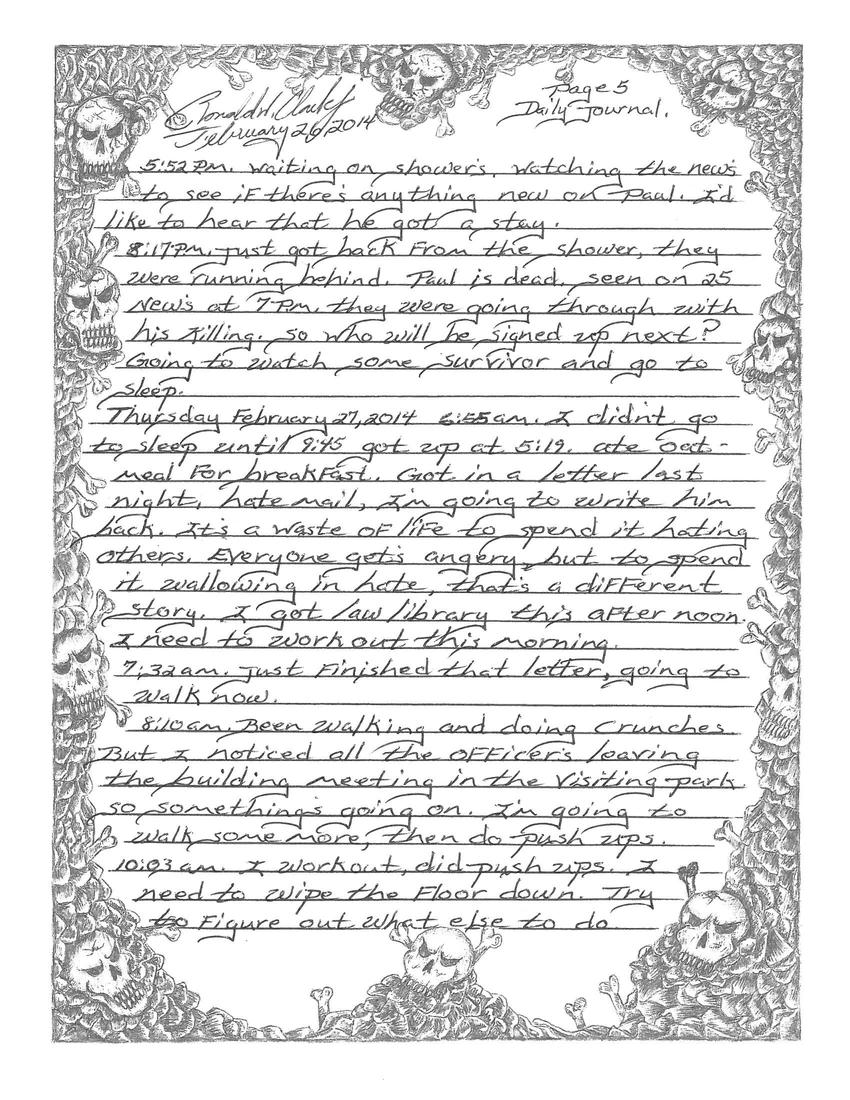 © Ronald W. Clark Jr
February 26 2014
Page 5
Daily Journal.
5:52 P.M. waiting on shower's. watching the news
to see if there's anything new on Paul. I'd
like to hear that he got a stay.
8:17 P.M. just got back From the shower, they
were running behind. Paul is dead. seen on 25
News at 7 P.m. they were going through with
his killing. so who will be signed up next?
Going to watch some survivor and go to
sleep.
Thursday February 27, 2014 6:55 am. I didn't go
to sleep until 9:45 got up at 5:19. ate oat-
meal For breakFast. Got in a letter last
night, hate mail, I'm going to write him
back. It's a waste oF liFe to spend it hating
others. Everyone get's angery, but to spend
it wallowing in hate, that's a diFFerent
story. I got law library this aFter noon.
I need to work out this morning.
7:32 am. just Finished that letter, going to
walk now.
8:10 am. Been walking and doing Crunches
But I noticed all the oFFicer's leaving
the building meeting in the Visiting park
so something's going on. I'm going to
walk some more, then do push ups.
10:03 am. I workout, did push ups. I
need to wipe the Floor down. Try
to Figure out what else to do